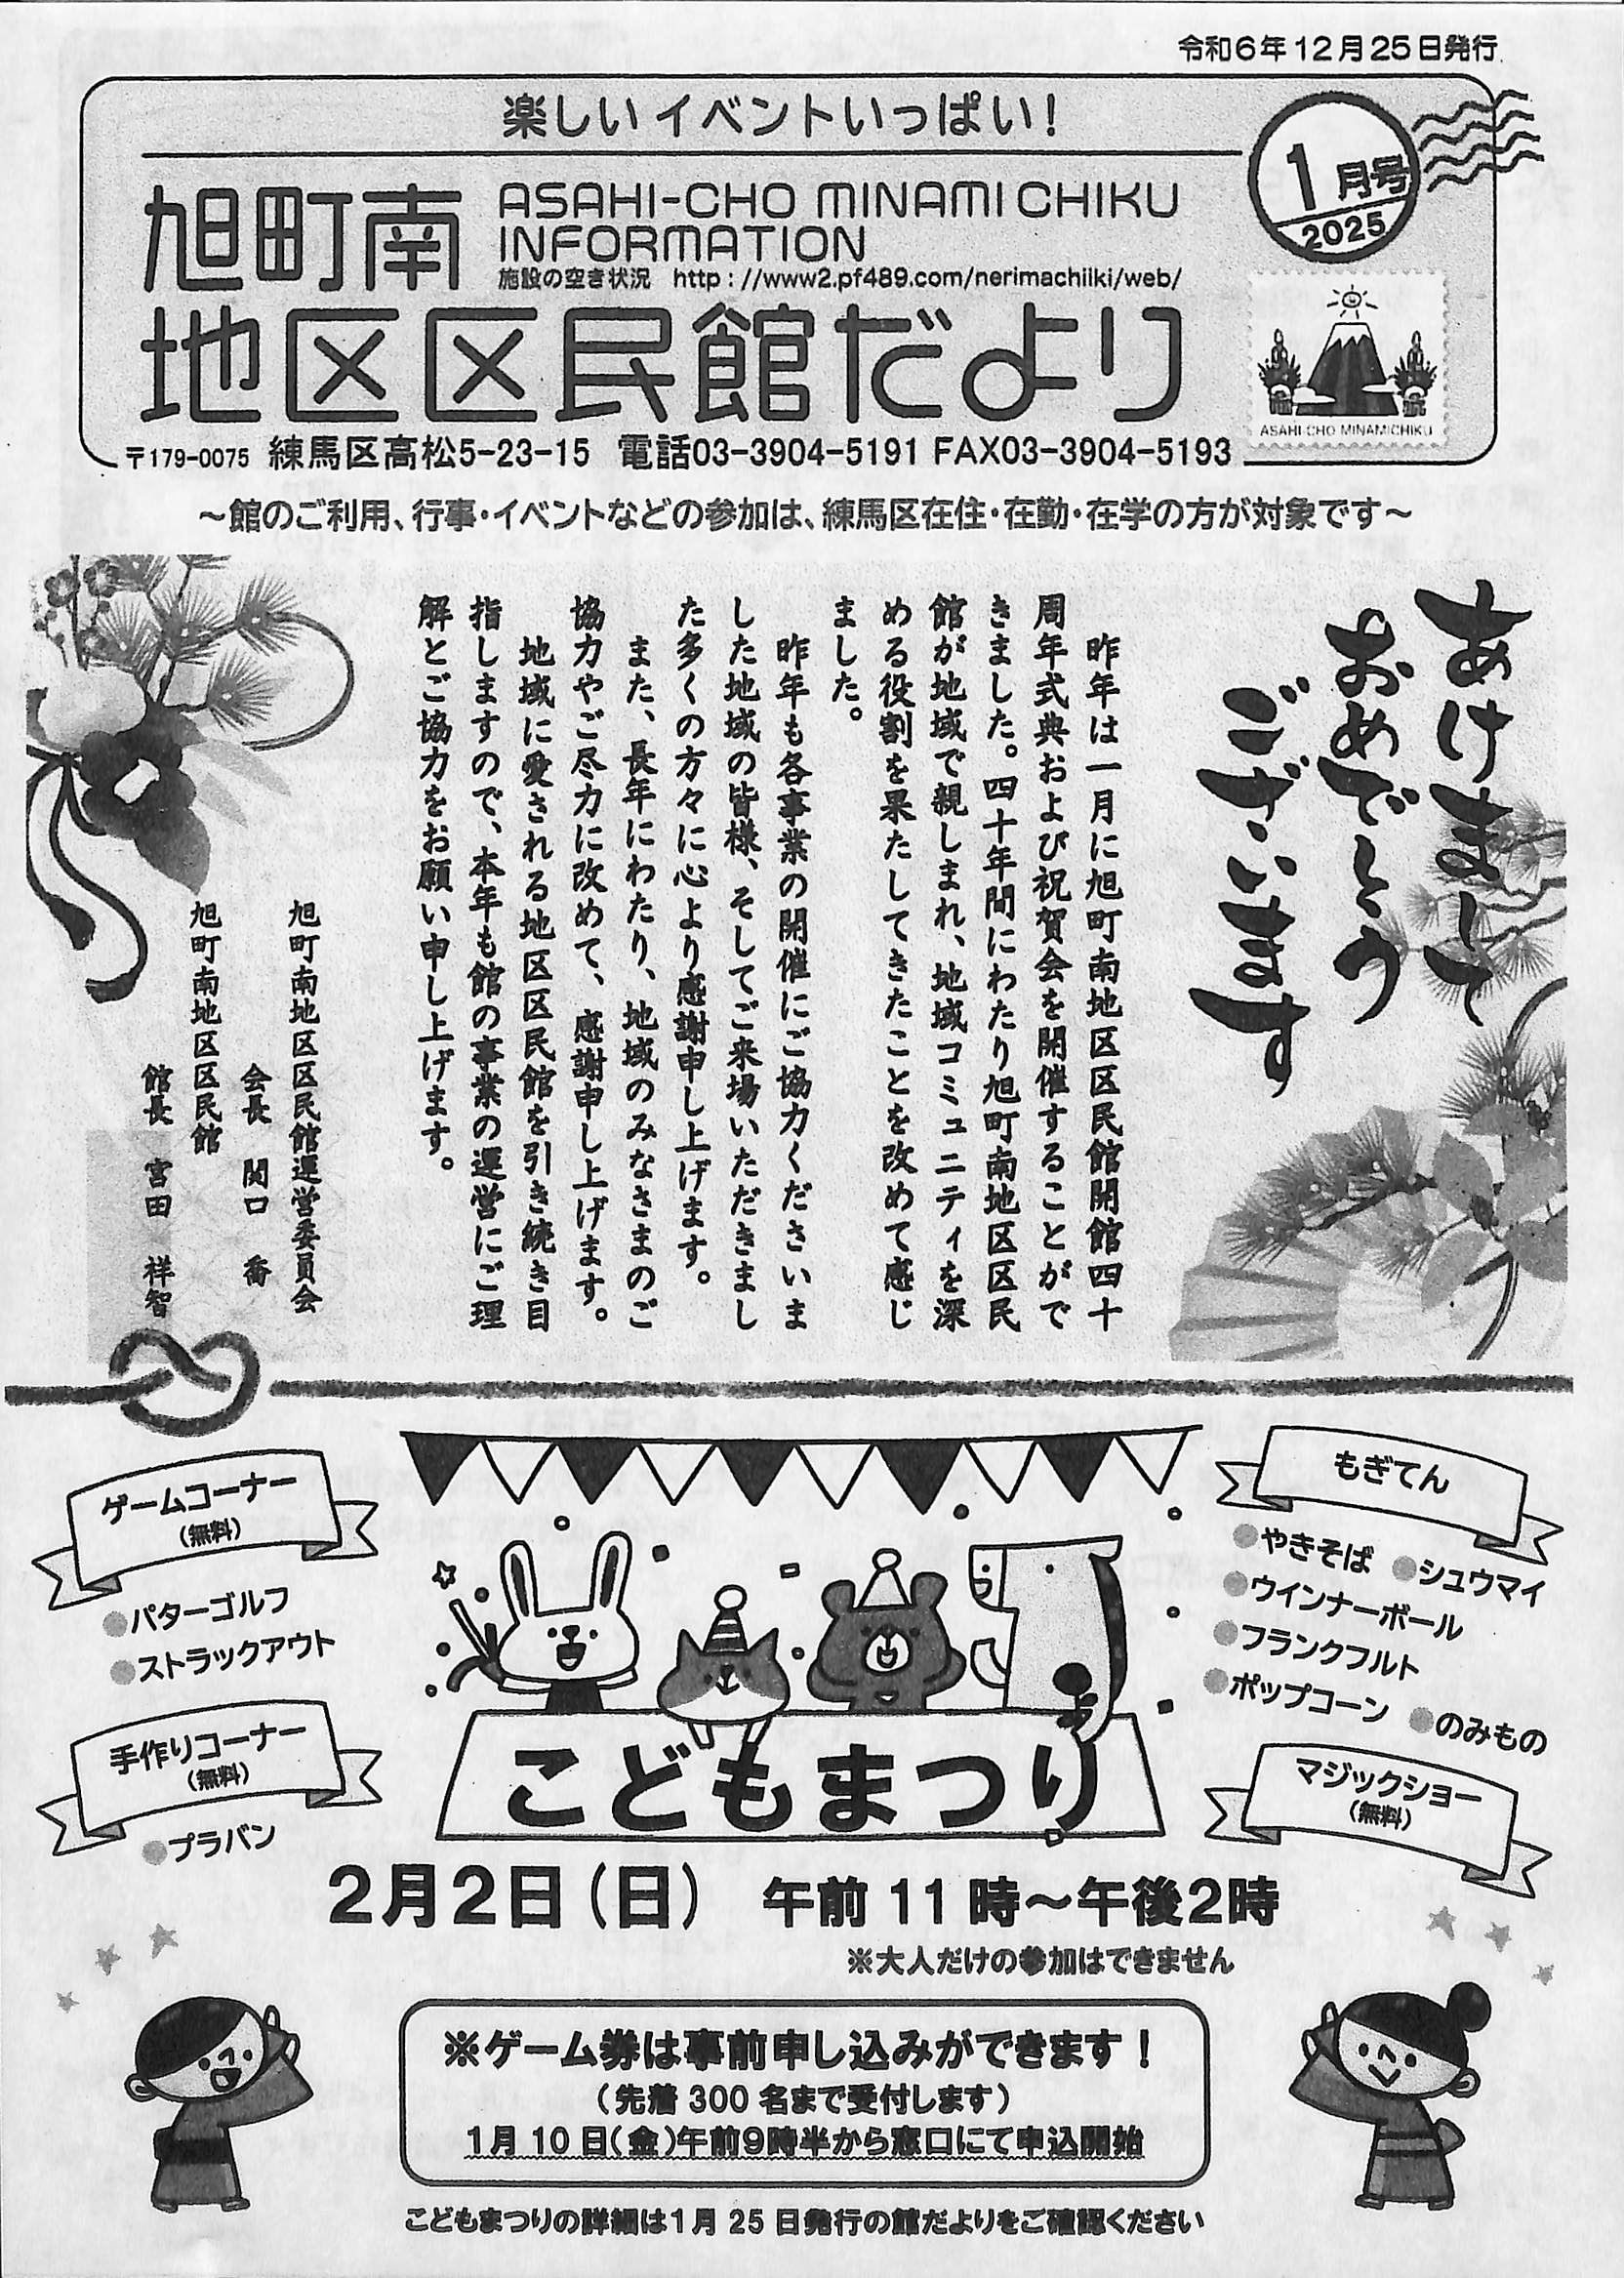 令和6年12月25日発行
楽しいイベントいっぱい！
1月号
2025
旭町南
ASAHI-CHO MINAMI CHIKU
INFORMATION
施設の空き状況　http://www2.pf489.com/nerimachiiki/web/
地区区民館だより
ASAHI-CHO MINAMICHIKU
〒179-0075 練馬区高松5-23-15 電話03-3904-5191 FAX03-3904-5193
～館のご利用、行事・イベントなどの参加は、練馬区在住・在勤・在学の方が対象です～
あけまして
おめでとう
ございます
昨年は一月に旭町南地区区民館開館四十
周年式典および祝賀会を開催することがで
きました。四十年間にわたり旭町南地区区民
館が地域で親しまれ、地域コミュニティを深
める役割を果たしてきたことを改めて感じ
ました。
昨年も各事業の開催にご協力くださいま
した地域の皆様、そしてご来場いただきまし
た多くの方々に心より感謝申し上げます。
また、長年にわたり、地域のみなさまのご
協力やご尽力に改めて、感謝申し上げます。
地域に愛される地区区民館を引き続き目
指しますので、本年も館の事業の運営にご理
解とご協力をお願い申し上げます。
旭町南地区区民館運営委員会
会長　関口　喬
旭町南地区区民館
館長　宮田　祥智
ゲームコーナー
（無料）
●パターゴルフ
●ストラックアウト
手作りコーナー
（無料）
●プラバン
もぎてん
●やきそば ●シュウマイ
●ウインナーボール
●フランクフルト
●ポップコーン ●のみもの
マジックショー
（無料）
こどもまつり
2月2日（日）　午前11時～午後2時
※大人だけの参加はできません
※ゲーム券は事前申し込みができます！
（先着300名まで受付します）
1月10日（金）午前9時半から窓口にて申込開始
こどもまつりの詳細は1月25日発行の館だよりをご確認ください